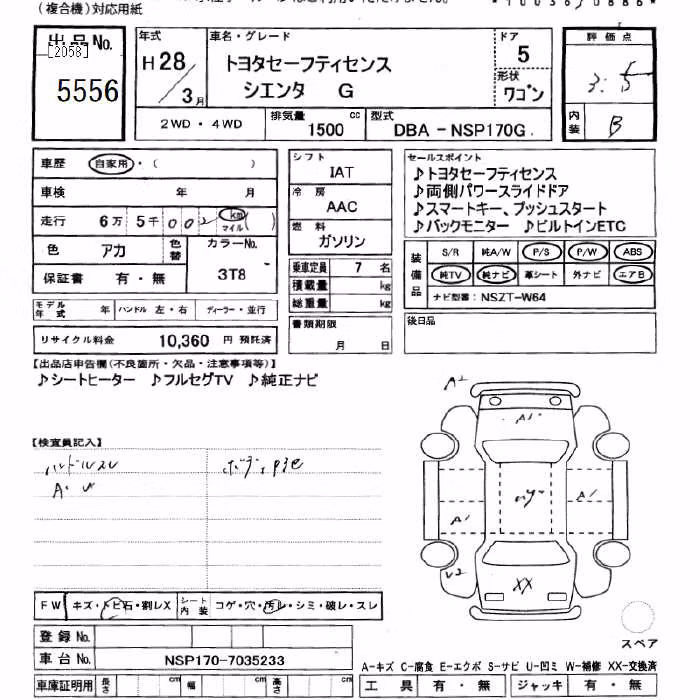 (複合機)対応用紙
出品No.
[2058]
5556
年式
H28/3月
車名・グレード
トヨタセーフティセンス
シエンタ G
ドア
5
形状
ワゴン
評価点
3.5
内装
B
2WD・4WD
排気量
1500 cc
型式
DBA-NSP170G
車歴 自家用・( )
車検 年 月
走行 6万 5千 002 km マイル ( )
色 アカ 色替 カラーNo.
保証書 有・無 3T8
シフト
IAT
冷房
AAC
燃料
ガソリン
乗車定員 7 名
積載量 kg
総重量 kg
書類期限
月 日
セールスポイント
♪トヨタセーフティセンス
♪両側パワースライドドア
♪スマートキー、プッシュスタート
♪バックモニター ♪ビルトインETC
装備品
S/R 純A/W P/S P/W ABS
純TV 純ナビ 革シート 外ナビ エアB
ナビ型番: NSZT-W64
後日品
モデル年式 年 ハンドル 左・右 ディーラー・並行
リサイクル料金 10,360 円 預託済
【出品店申告欄(不良箇所・欠品・注意事項等)】
♪シートヒーター ♪フルセグTV ♪純正ナビ
【検査員記入】
ハンドルスレ
A2
A1
A1
A1
XX
FW キズ・トビ石・割レX シート内装 コゲ・穴・汚レ・シミ・破レ・スレ
登録No.
車台No. NSP170-7035233
車庫証明用 長さ cm 幅 cm 高さ cm
スペア
A-キズ C-腐食 E-エクボ S-サビ U-凹ミ W-補修 XX-交換済
工具 有・無 ジャッキ 有・無